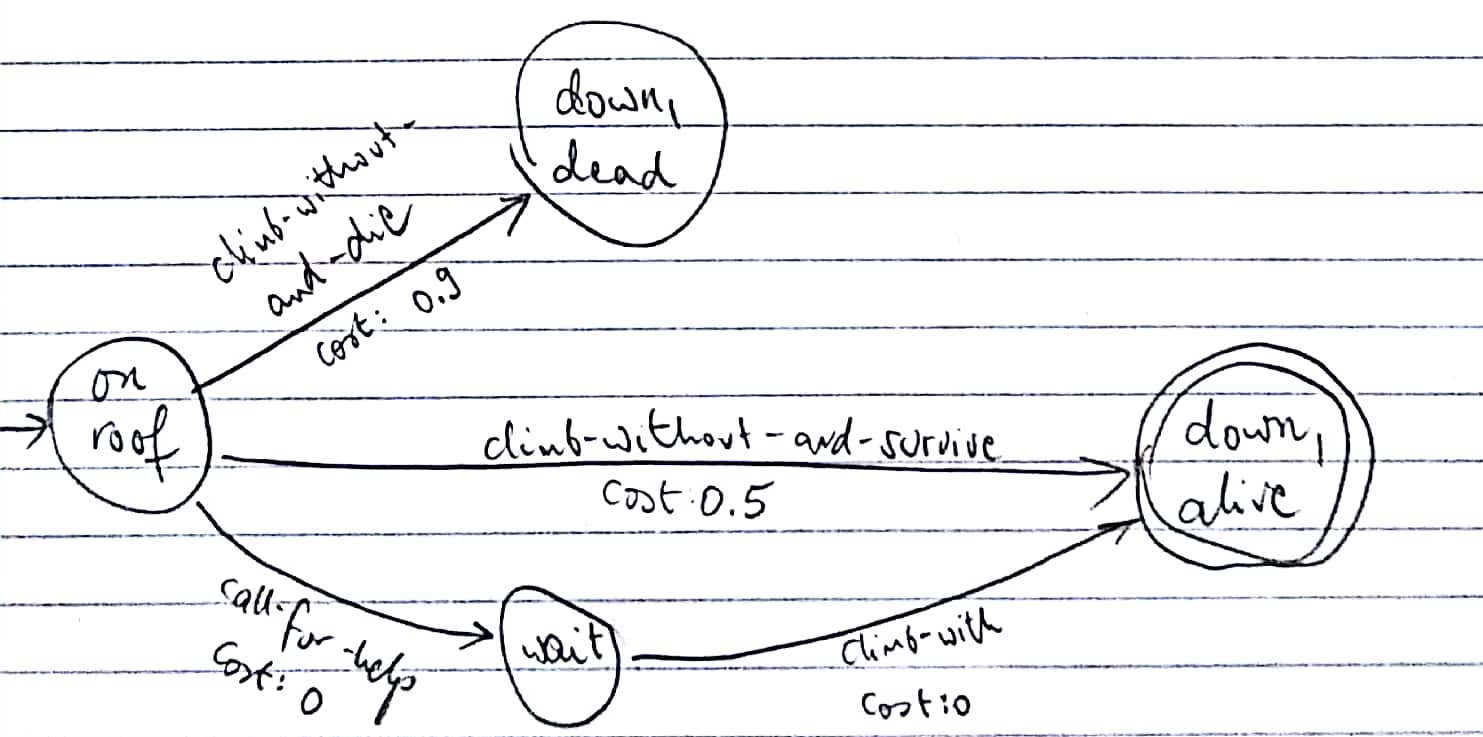 down,
dead
climb-without-
and-die
cost: 0.9
on
roof
climb-without-and-survive
Cost: 0.5
down,
alive
call-
for-help
Cost:
0
wait
climb-with
Cost: 0